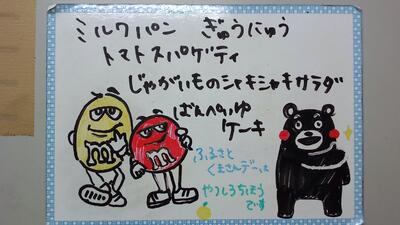 ミルクパン ぎゅうにゅう
トマトスパゲティ
じゃがいものシャキシャキサラダ
ばんぺいゆ
ケーキ
ふるさと
くまさんデーは
やつしろちほう
です
m
m